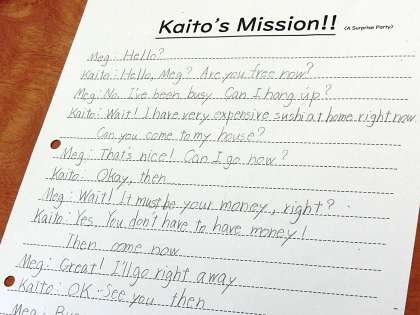 Kaito's Mission!! (A Surprise Party?
Meg: Hello?
Kaito: Hello, Meg? Are you free now?
Meg: No. I've been busy. Can I hang up?
Kaito: Wait! I have very expensive sushi at home right now.
Can you come to my house?
Meg: That's nice! Can I go now?
Kaito: Okay, then
Meg: Wait! It must be your money, right?
Kaito: Yes. You don't have to have money!
Then come now
Meg: Great! I'll go right away
Kaito: OK. See you then
Meg: